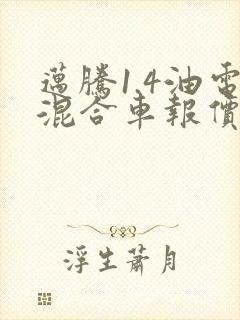 邁騰1.4油電
混合車報價
浮生蕭月